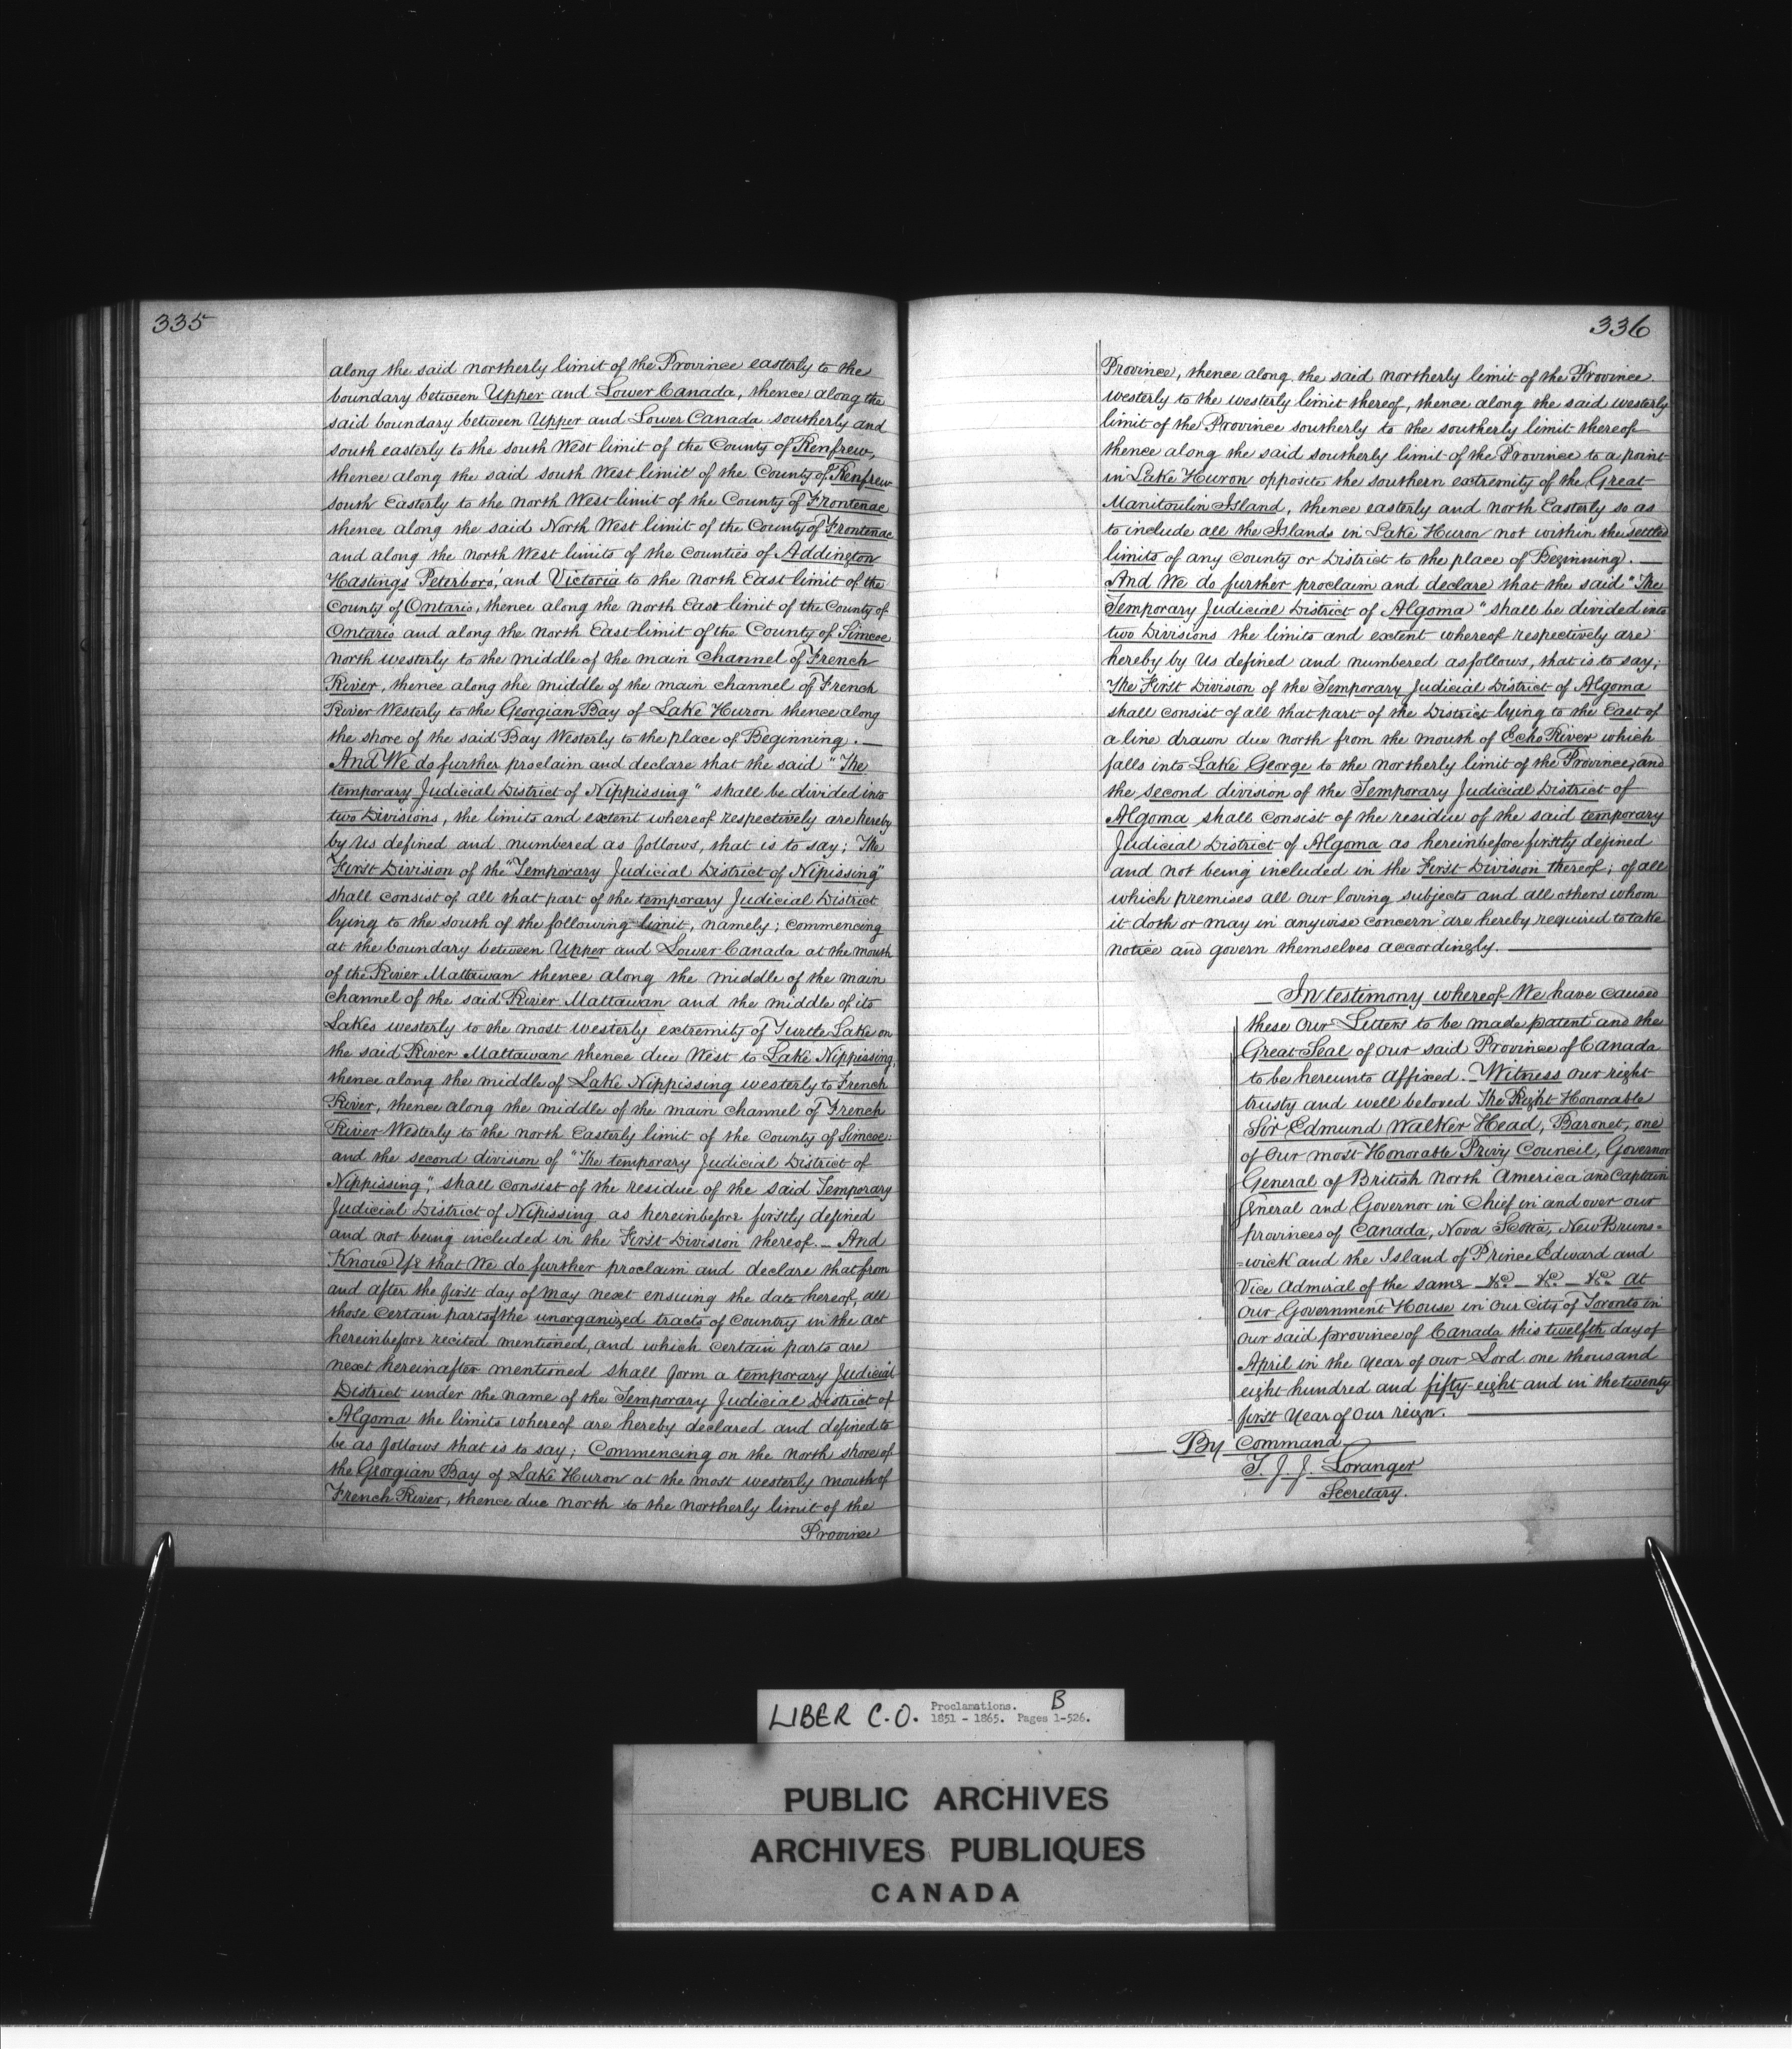 335
along the said northerly limit of the Province easterly to the
boundary between Upper and Lower Canada, thence along the
said boundary between Upper and Lower Canada southerly and
south easterly to the south West limit of the County of Renfrew,
thence along the said south West limit of the County of Renfrew
south Easterly to the North West limit of the County of Frontenac
thence along the said North West limit of the County of Frontenac
and along the north West limits of the Counties of Addington
Hastings Peterboro', and Victoria to the north East limit of the
County of Ontario, thence along the north East limit of the County of
Ontario and along the north East limit of the County of Simcoe
north westerly to the middle of the main Channel of French
River, thence along the middle of the main channel of French
River Westerly to the Georgian Bay of Lake Huron thence along
the shore of the said Bay Westerly to the place of Beginning. —
And We do further proclaim and declare that the said "The
temporary Judicial District of Nippissing" shall be divided into
two Divisions, the limits and extent whereof respectively are hereby
by us defined and numbered as follows, that is to say; The
First Division of the "Temporary Judicial District of Nipissing"
shall consist of all that part of the temporary Judicial District
lying to the south of the following limit, namely; commencing
at the boundary between Upper and Lower Canada at the mouth
of the River Mattawan thence along the middle of the main
channel of the said River Mattawan and the middle of its
Lakes westerly to the most westerly extremity of Turtle Lake on
the said River Mattawan thence due West to Lake Nippissing,
thence along the middle of Lake Nippissing westerly to French
River, thence along the middle of the main channel of French
River Westerly to the north Easterly limit of the County of Simcoe:
and the second division of "The temporary Judicial District of
Nippissing", shall consist of the residue of the said Temporary
Judicial District of Nipissing as hereinbefore firstly defined
and not being included in the First Division thereof. — And
Know Ye that We do further proclaim and declare that from
and after the first day of May next ensuing the date hereof, all
those certain parts of the unorganized tracts of Country in the act
hereinbefore recited mentioned, and which certain parts are
next hereinafter mentioned shall form a temporary Judicial
District under the name of the Temporary Judicial District of
Algoma the limits whereof are hereby declared and defined to
be as follows that is to say; Commencing on the north shore of
the Georgian Bay of Lake Huron at the most westerly mouth of
French River, thence due north to the northerly limit of the
Province
336
Province, thence along the said northerly limit of the Province
westerly to the westerly limit thereof, thence along the said westerly
limit of the Province southerly to the southerly limit thereof
thence along the said southerly limit of the Province to a point
in Lake Huron opposite the southern extremity of the Great
Manitoulin Island, thence easterly and north Easterly so as
to include all the Islands in Lake Huron not within the settled
limits of any County or District to the place of Beginning. —
And We do further proclaim and declare that the said "The
Temporary Judicial District of Algoma" shall be divided into
two Divisions the limits and extent whereof respectively are
hereby by Us defined and numbered as follows, that is to say;
The First Division of the Temporary Judicial District of Algoma
shall consist of all that part of the District lying to the East of
a line drawn due north from the mouth of Echo River which
falls into Lake George to the northerly limit of the Province, and
the second division of the Temporary Judicial District of
Algoma shall consist of the residue of the said temporary
Judicial District of Algoma as hereinbefore firstly defined
and not being included in the First Division thereof; of all
which premises all our loving subjects and all others whom
it doth or may in anywise concern are hereby required to take
notice and govern themselves accordingly. —
— In testimony whereof We have caused
these Our Letters to be made patent and the
Great Seal of our said Province of Canada
to be hereunto affixed. — Witness our right
trusty and well beloved The Right Honorable
Sir Edmund Walker Head, Baronet, one
of Our most Honorable Privy Council, Governor
General of British North America and Captain
General and Governor in Chief in and over our
provinces of Canada, Nova Scotia, New Bruns=
=wick and the Island of Prince Edward and
Vice Admiral of the same — &c. — &c. — &c. At
our Government House in Our City of Toronto in
our said province of Canada this twelfth day of
April in the Year of our Lord one thousand
eight hundred and fifty-eight and in the twenty
first Year of Our reign. —
— By Command
T. J. J. Loranger
Secretary.
LIBER C.O. Proclamations. B
1851 - 1865. Pages 1-526.
PUBLIC ARCHIVES
ARCHIVES PUBLIQUES
CANADA